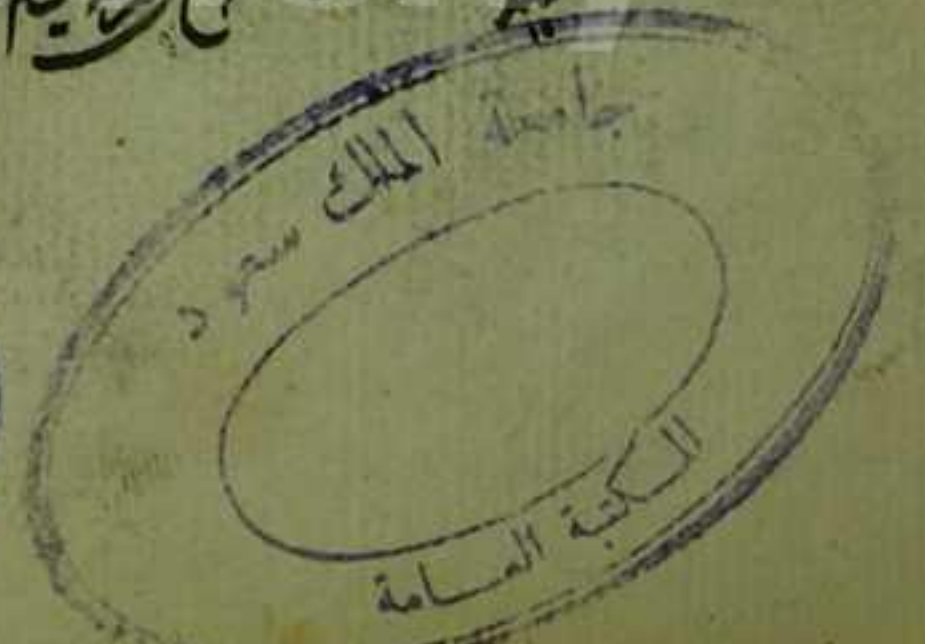 جامعة الملك سعود
المكتبة العامة